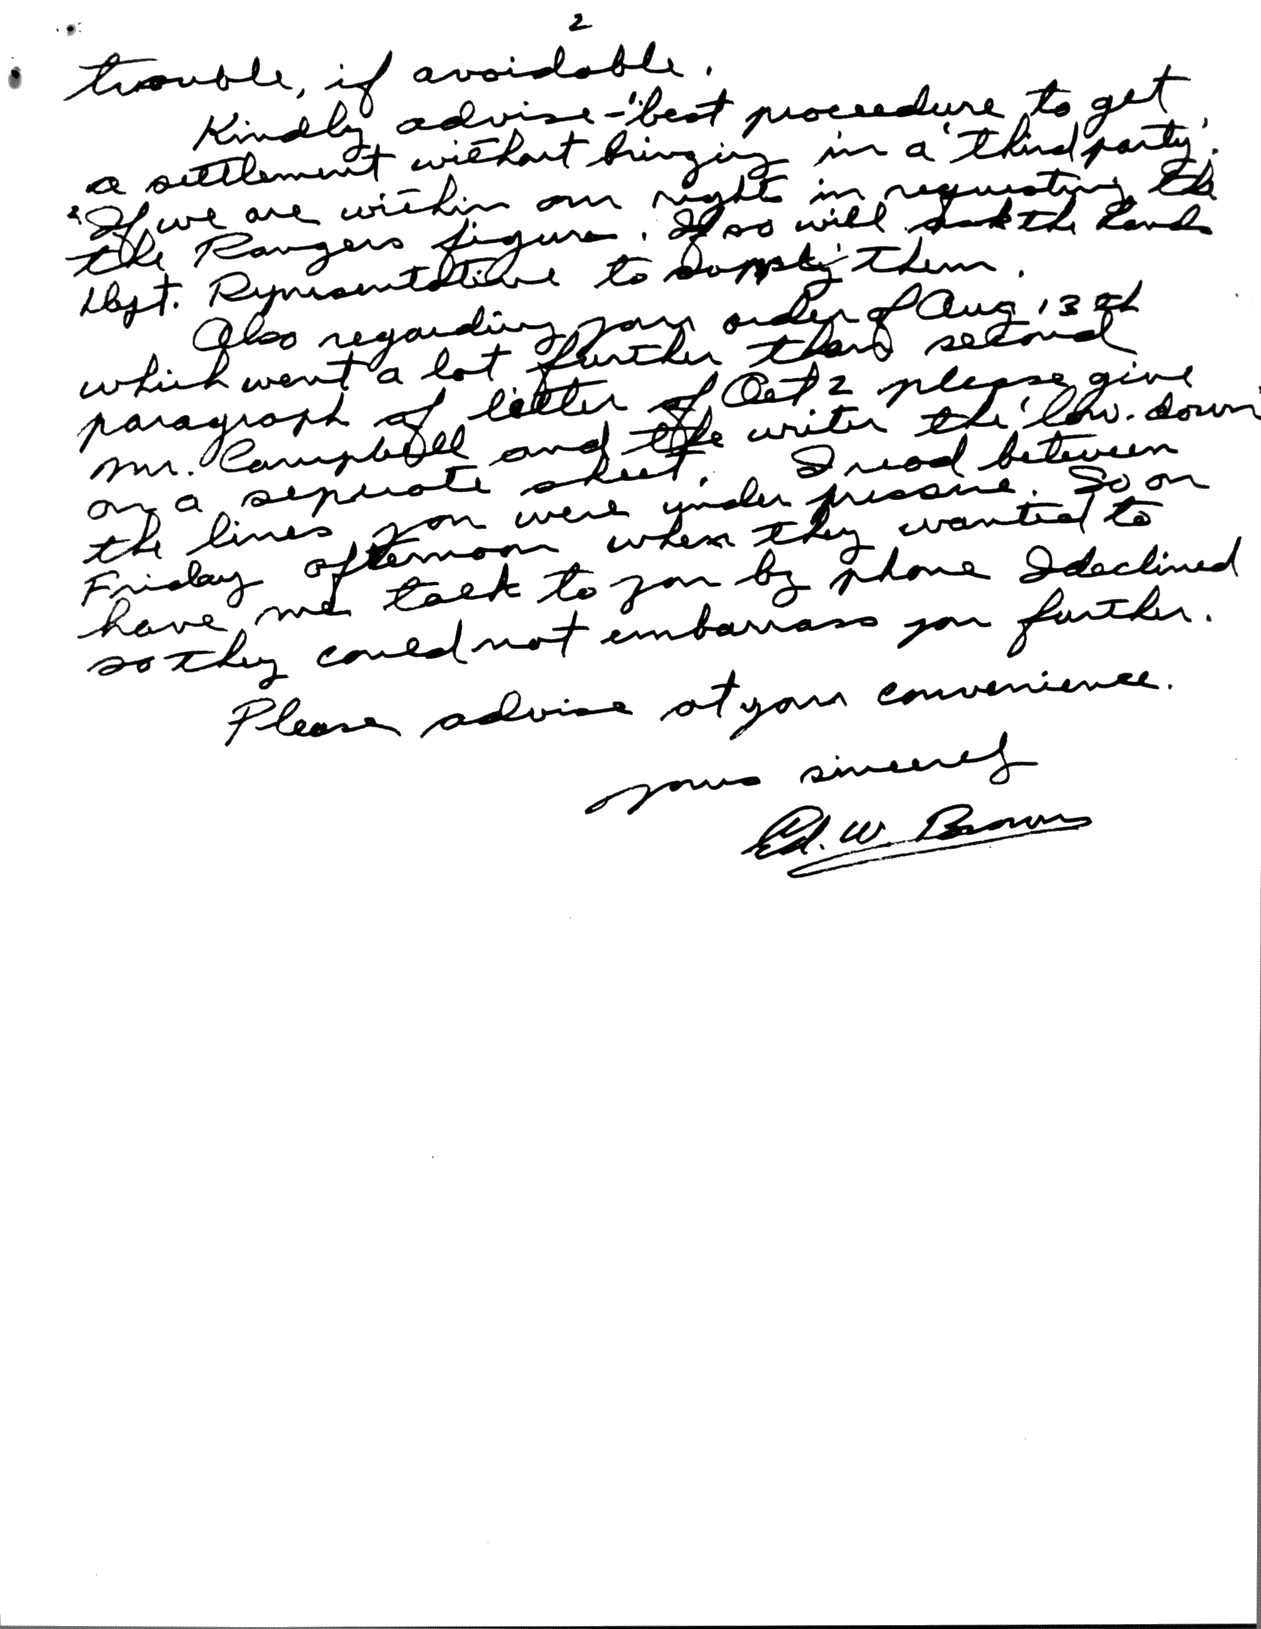 2
trouble, if avoidable.
Kindly advise - 'best proceedure to get
a settlement without bringing in a 'third party'.
If we are within our rights in requesting the
the Rangers figures. If so will ask the Lands
Dept. Representative to supply them.
Also regarding your order of Aug 13th
which went a lot further than second
paragraph of letter of Oct 2 please give
Mr. Campbell and the writer the 'low-down'
on a seperate sheet. I read between
the lines you were under pressure. So on
Friday afternoon when they wanted to
have me talk to you by phone I declined
so they could not embarrass you further.
Please advise at your convenience.
Yours sincerely
Ed. W. Brown